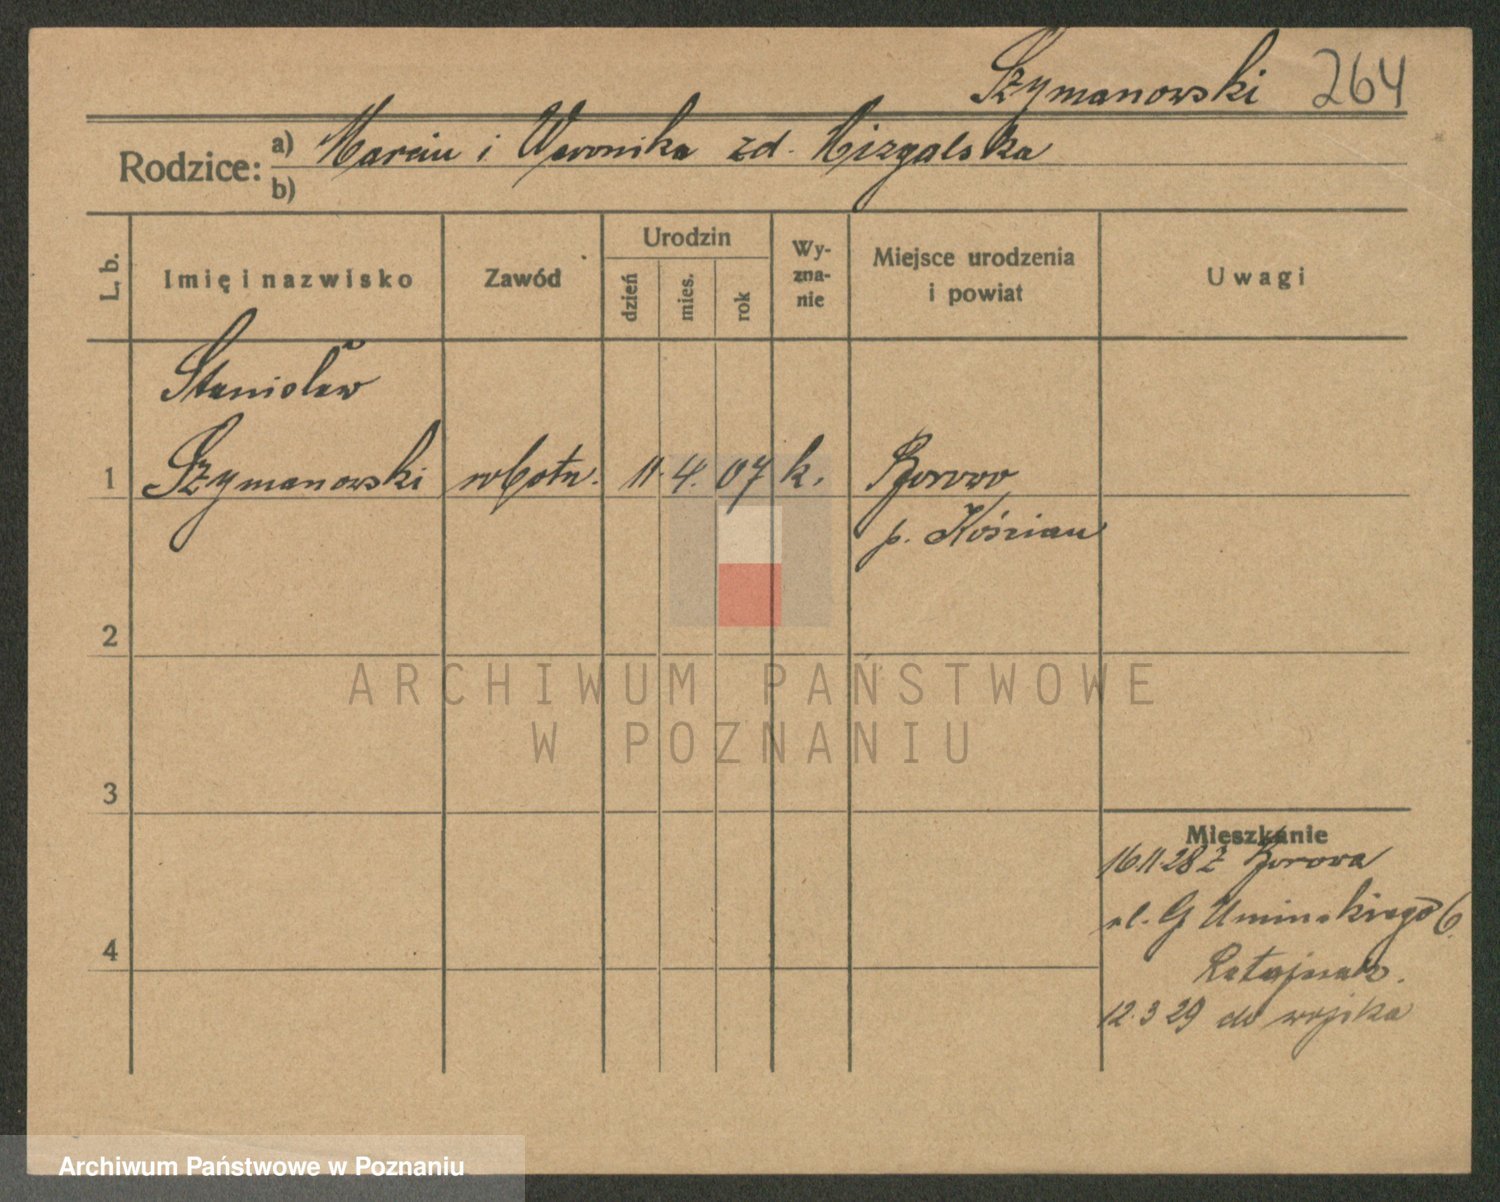 Szymanowski 264
Rodzice: a) Marcin i Weronika zd. Mizgalska
b)
L. b. Imię i nazwisko Zawód Urodzin dzień mies. rok Wy-zna-nie Miejsce urodzenia i powiat Uwagi
Stanisław
1 Szymanowski robotn. 11. 4. 07 k. Borowo
p. Kościan
2
ARCHIWUM PAŃSTWOWE
W POZNANIU
3
Mieszkanie
16 11 28 z Borowa
ul. G Umińskiego 6.
Ratajczak.
4
12.3 29 do wojska
Archiwum Państwowe w Poznaniu